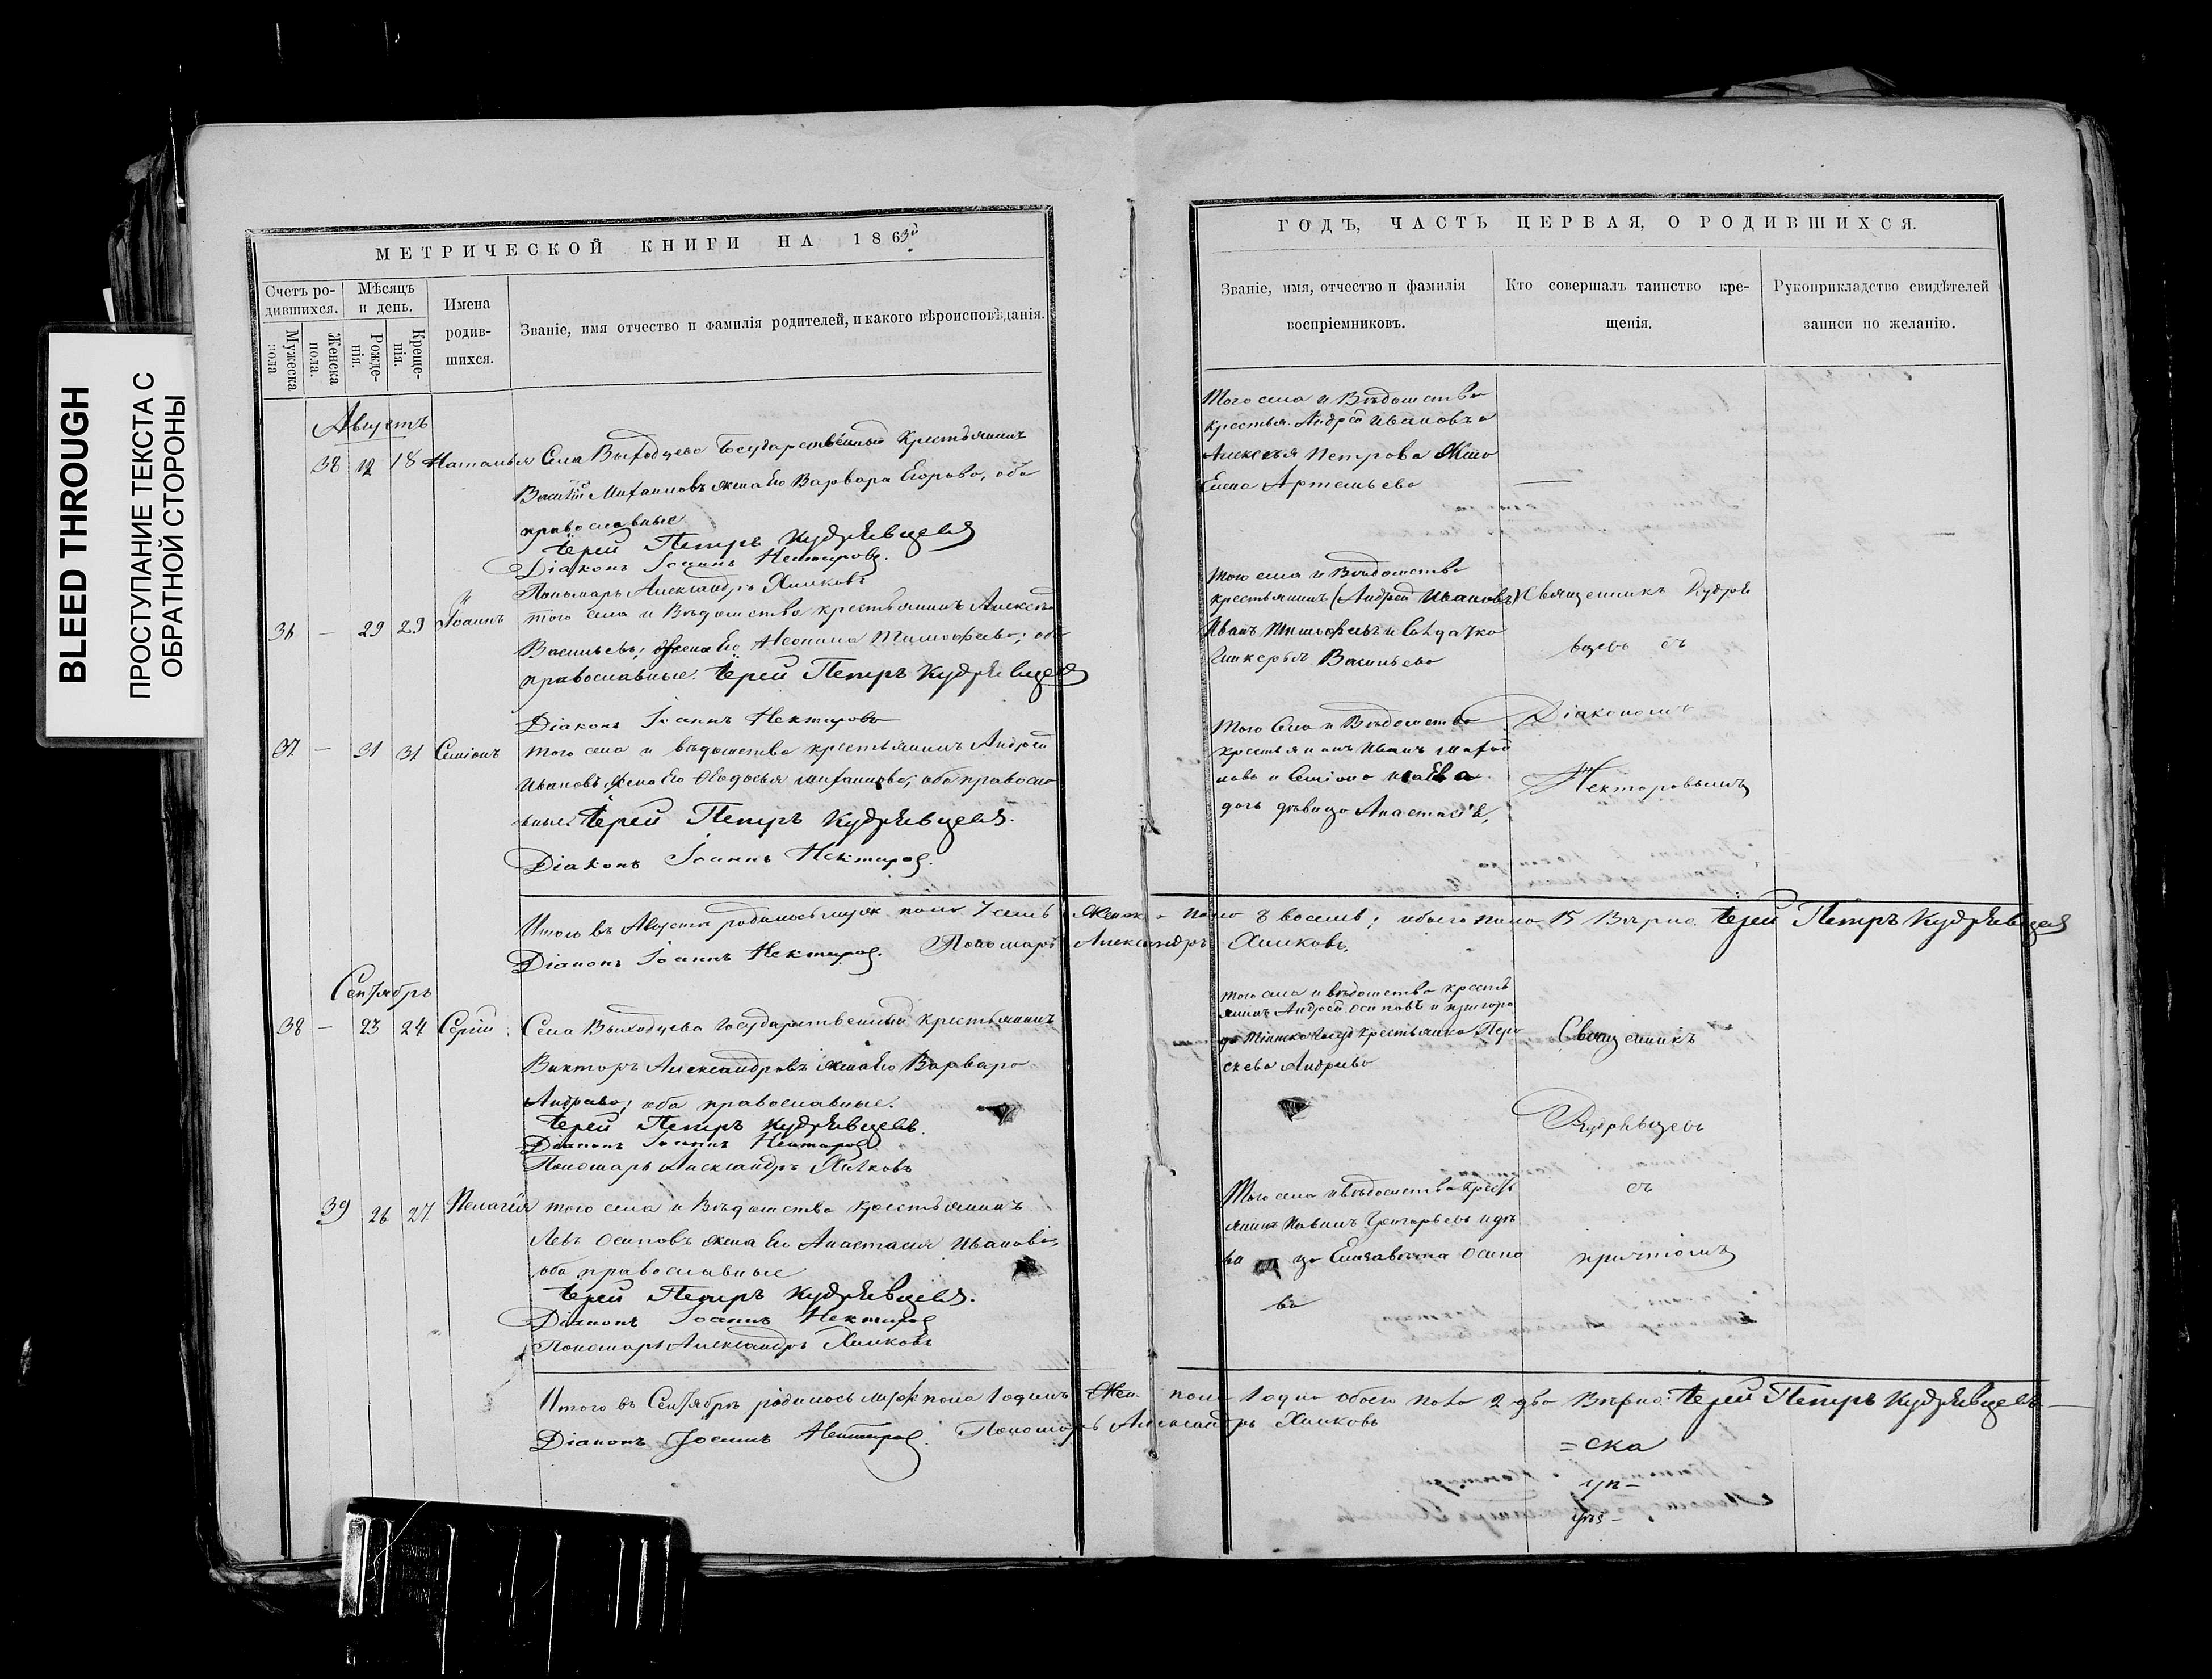 BLEED THROUGH
ПРОСТУПАНИЕ ТЕКСТА С
ОБРАТНОЙ СТОРОНЫ
МЕТРИЧЕСКОЙ КНИГИ НА 1863й
Счетъ ро-
дившихся.
Мужеска
пола
Женска
пола.
Мѣсяцъ
и день.
Рожде-
нія.
Креще-
нія.
Имена
родив-
шихся.
Званіе, имя отчество и фамилія родителей, и какого вѣроисповѣданія.
Августъ
38 12 18 Наталья Села Выходцева Государственный Крестьянинъ
Василій Михаиловъ жена Его Варвара Егорова, оба
православные
Іерей Петръ Кудрявцевъ
Діаконъ Іоаннъ Нектаровъ.
Пономарь Александръ Хилковъ
36 — 29 29 Іоаннъ того села и Вѣдомства крестьянинъ Алексѣй
Васильевъ; жена Его Тимофеева; оба
православные. Іерей Петръ Кудрявцевъ
Діаконъ Іоаннъ Нектаровъ
37 — 31 31 Симіонъ того села и вѣдомства крестьянинъ Андрей
Ивановъ, жена Его Ѳеодосья Михаилова; оба правосла
вные. Іерей Петръ Кудрявцевъ.
Діаконъ Іоаннъ Нектаровъ.
Итого въ Августѣ родилось муж пола 7 семь Женск пола 8 восемь; обоего пола 15 Вѣрно. Іерей Петръ Кудрявцевъ
Діаконъ Іоаннъ Нектаровъ. Пономарь Александръ Хилковъ
Сентябрь
38 — 23 24 Сергій Села Выходцева Государственный крестьянинъ
Викторъ Александровъ жена Его Варвара
Андреева; оба православные.
Іерей Петръ Кудрявцевъ.
Діаконъ Іоаннъ Нектаровъ
Пономарь Александръ Хилковъ
39 26 27 Пелагія того села и Вѣдомства крестьянинъ
Левъ Осиповъ жена Его Анастасія Иванова,
оба православные
Іерей Петръ Кудрявцевъ.
Діаконъ Іоаннъ Нектаровъ
Пономарь Александръ Хилковъ
Итого въ Сентябрѣ родилось муж пола 1 одинъ Жен. пола 1 одна обоего пола 2 два Вѣрно: Іерей Петръ Кудрявцевъ
Діаконъ Іоаннъ Нектаровъ. Пономарь Александръ Хилковъ
ГОДЪ, ЧАСТЬ ПЕРВАЯ, О РОДИВШИХСЯ.
Званіе, имя, отчество и фамилія
воспріемниковъ.
Кто совершалъ таинство кре-
щенія.
Рукоприкладство свидѣтелей
записи по желанію.
Того села и Вѣдомства
крестья. Андрей Ивановъ и
Алексѣя Петрова Жена
Елена Артемьева
того села и Вѣдомства
крестьянинъ (Андрей Ивановъ)
Иванъ Тимофеевъ и Солдатка
Гликерья Васильева
Священникъ Кудряв
цевъ съ
Діакономъ
Нектаровымъ
Того Села и Вѣдомства
крестьянинъ Иванъ
и Симіона
дочь дѣвица Анастасія,
того села и вѣдомства кресть
янинъ Андрей Осиповъ и
крестьянка Пара
скева Андреева
Священникъ
Кудрявцевъ
съ
причтомъ
Того села и вѣдомства кресть
янинъ Павелъ Григорьевъ и дѣ
ви ца Елизавета Осипо
ва
=ска